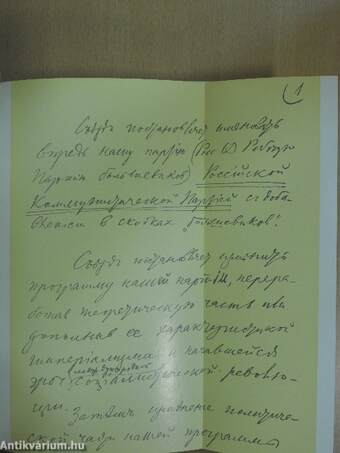 1
Съезд постановляет именовать
впредь нашу партию Рабочую
Партию большевиков) Российской
Коммунистической Партией с доба
влением в скобках большевиков.
Съезд постановляет изменить
программу нашей партии, перера-
ботав теоретическую часть или
дополнив ее характеристикой
империализма и начавшейся
эры международной социалистической револю-
ции.
Затем изменение политиче-
ской части нашей программы
Antikvarium.hu